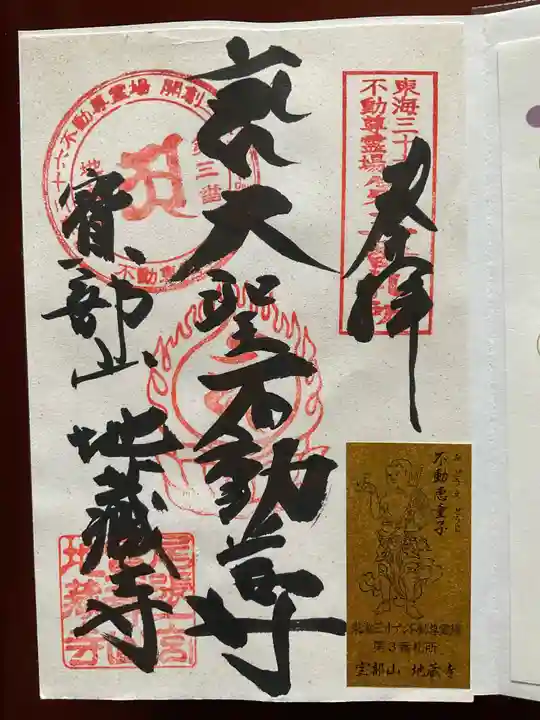 奉拝
大聖不動尊
寳部山 地蔵寺
東海三十
不動尊霊場
十六不動尊霊場 開創
不動恵童子
東海三十六不動尊霊場
第3番札所
宝部山 地蔵寺
地蔵寺